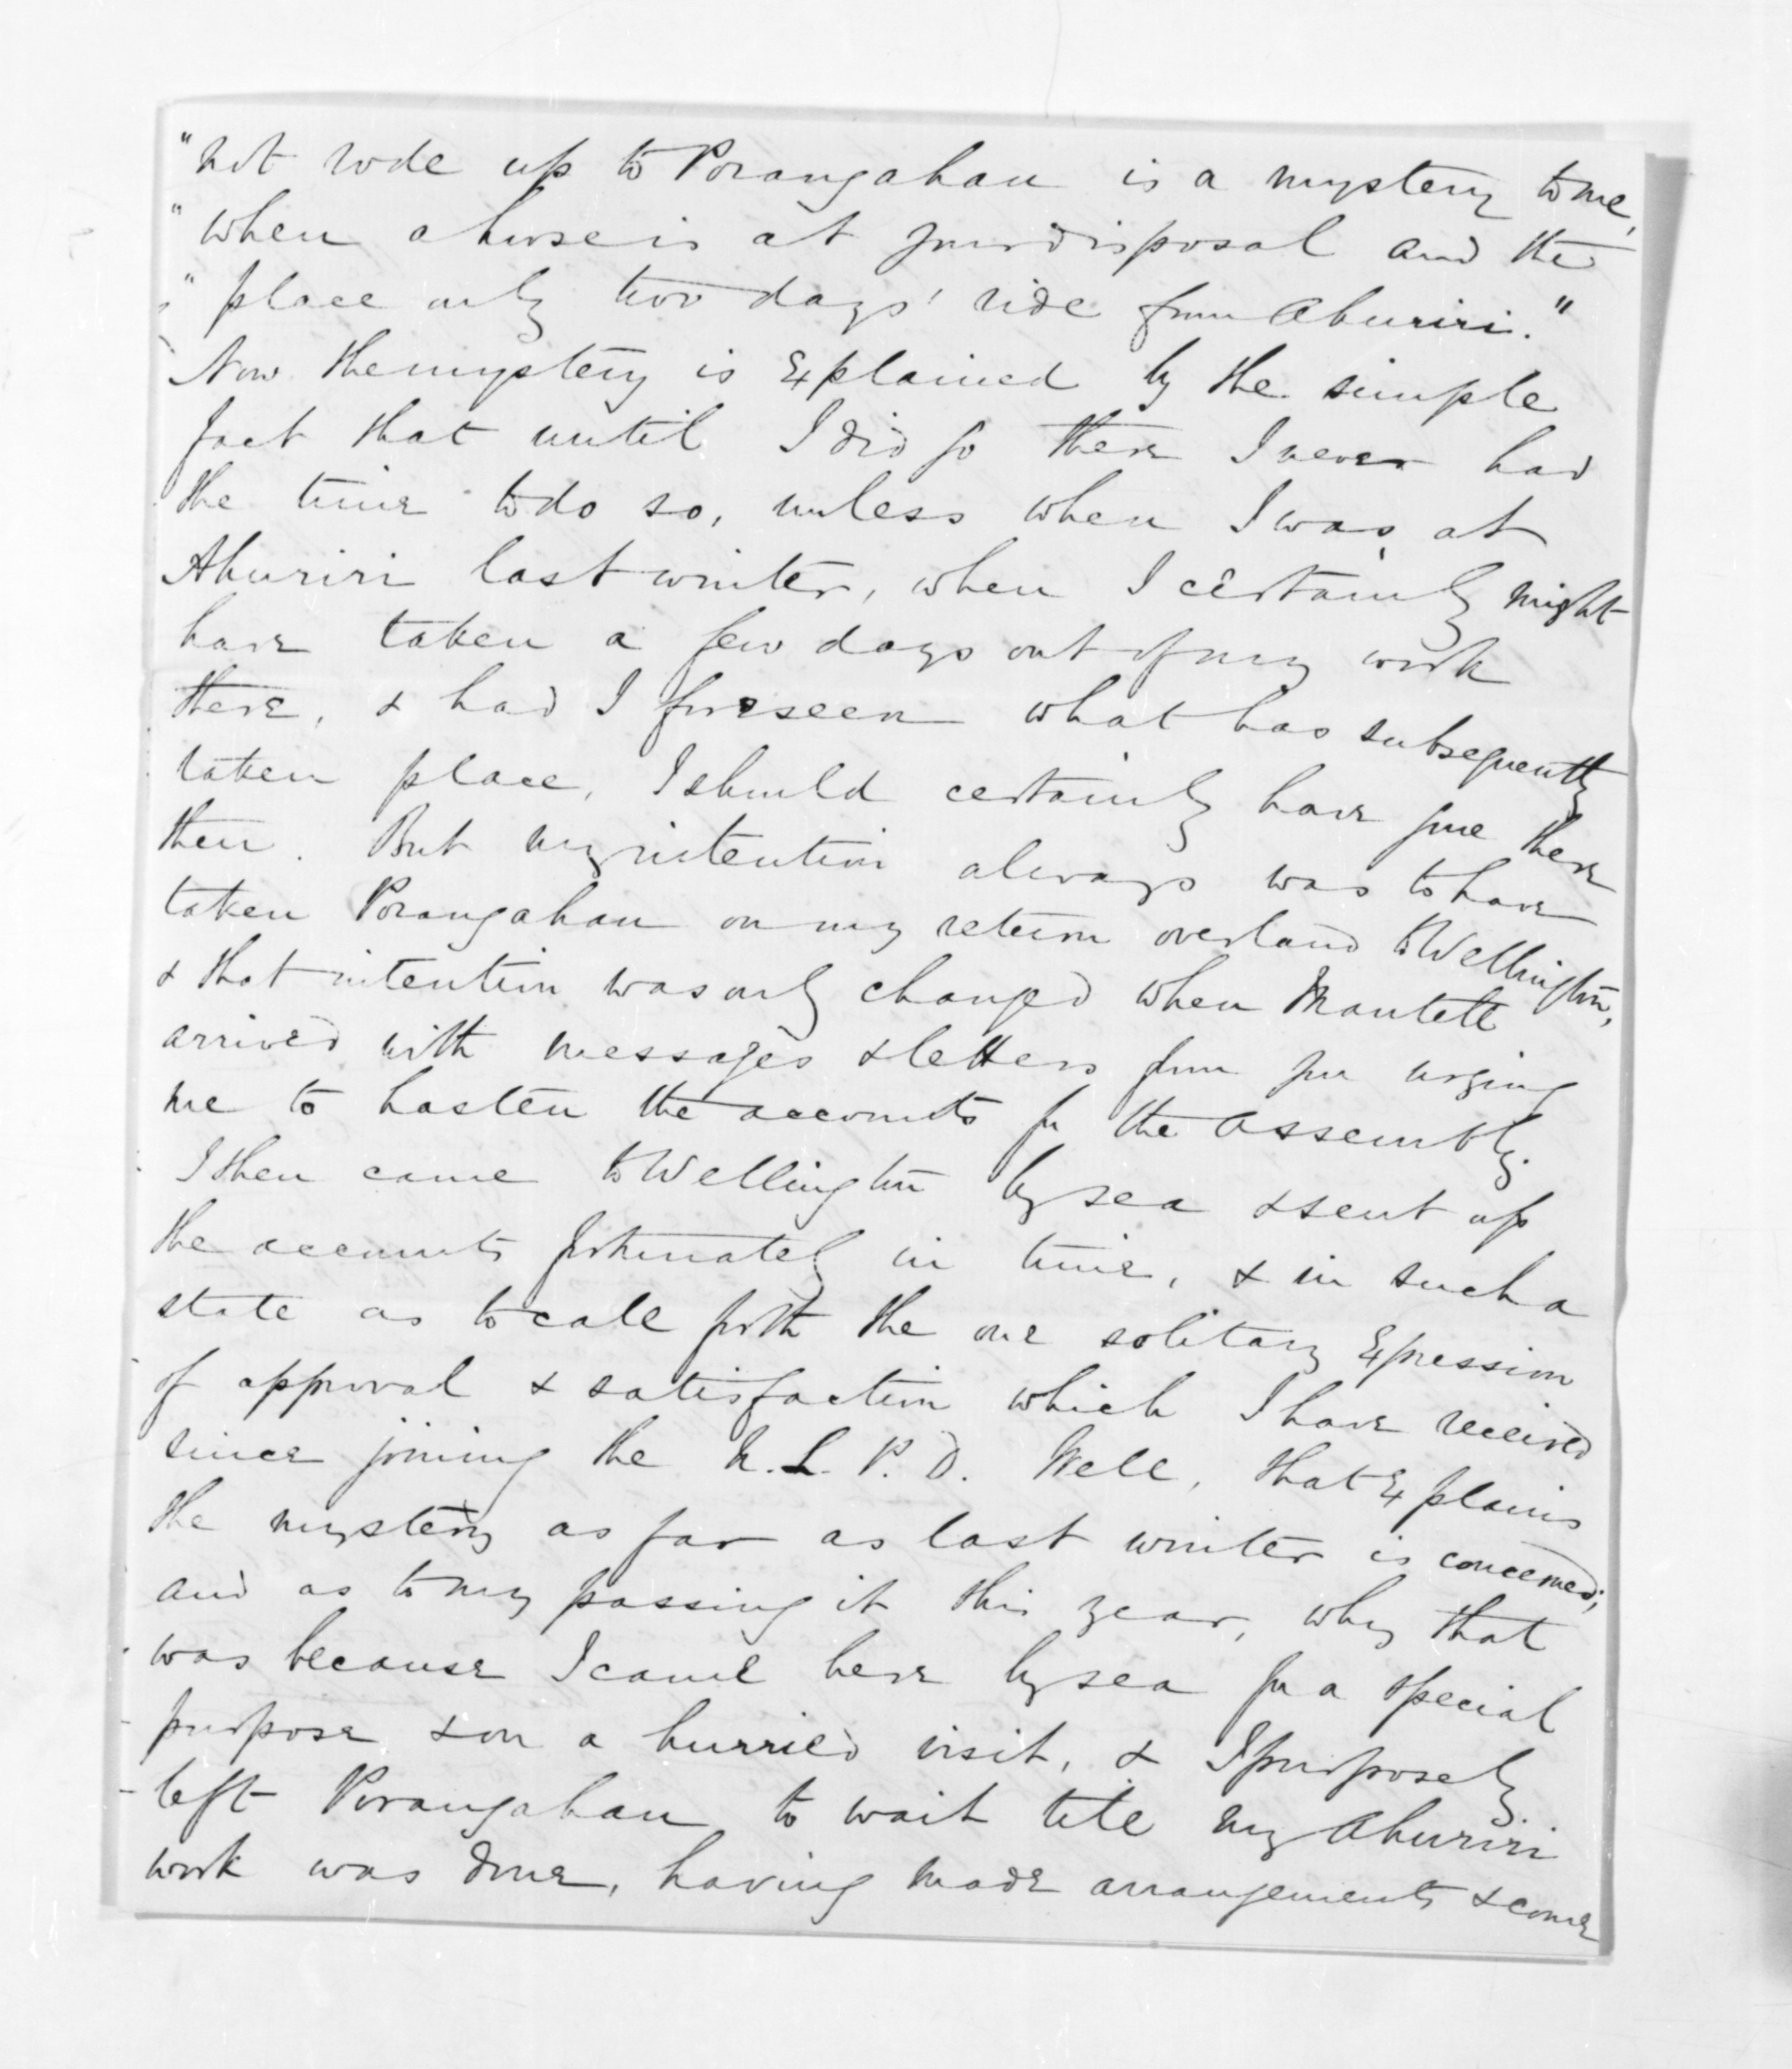 "not rode up to Porangahau is a mystery to me,
" when a horse is at your disposal and the
" place only two days' ride from Ahuriri."
Now the mystery is explained by the simple
fact that until I did go there I never had
the time to do so, unless when I was at
Ahuriri last winter, when I certainly might
have taken a few days out of my work
there, & had I foreseen what has subsequently
taken place, I should certainly have gone there
then. But my intention always was to have
taken Porangahau on my return overland to Wellington,
& that intention was only changed when Mantell
arrived with messages & letters from you urging
me to hasten the accounts for the Assembly.
I then came to Wellington by sea & sent up
the accounts fortunately in time, & in such a
state as to call forth the one solitary expression
of approval & satisfaction which I have received
since joining the N. L. P. D. Well, that explains
the mystery as far as last winter is concerned;
and as to my passing it this year, why that
was because I came here by sea for a special
purpose & on a hurried visit, & I purposely
left Porangahau to wait till my Ahuriri
work was done, having made arrangements & come